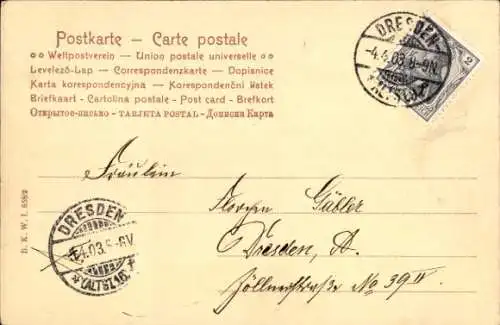 Postkarte — Carte postale
Weltpostverein — Union postale universelle
Levelező-Lap — Correspondenzkarte — Dopisnice
Karta korespondencyjna — Korespondenční listek
Briefkaart - Cartolina postale - Post card - Brefkort
Открытое-письмо - TARJETA POSTAL - Дописна Карта
DRESDEN
-4.4.03.8-9N.
*(ALTST.)
2
Fräulein
Gäbler
Dresden, A.
Zöllnerstraße No 39 II
DRESDEN
*(ALTST.)16.
B. K. W. I. 658/2